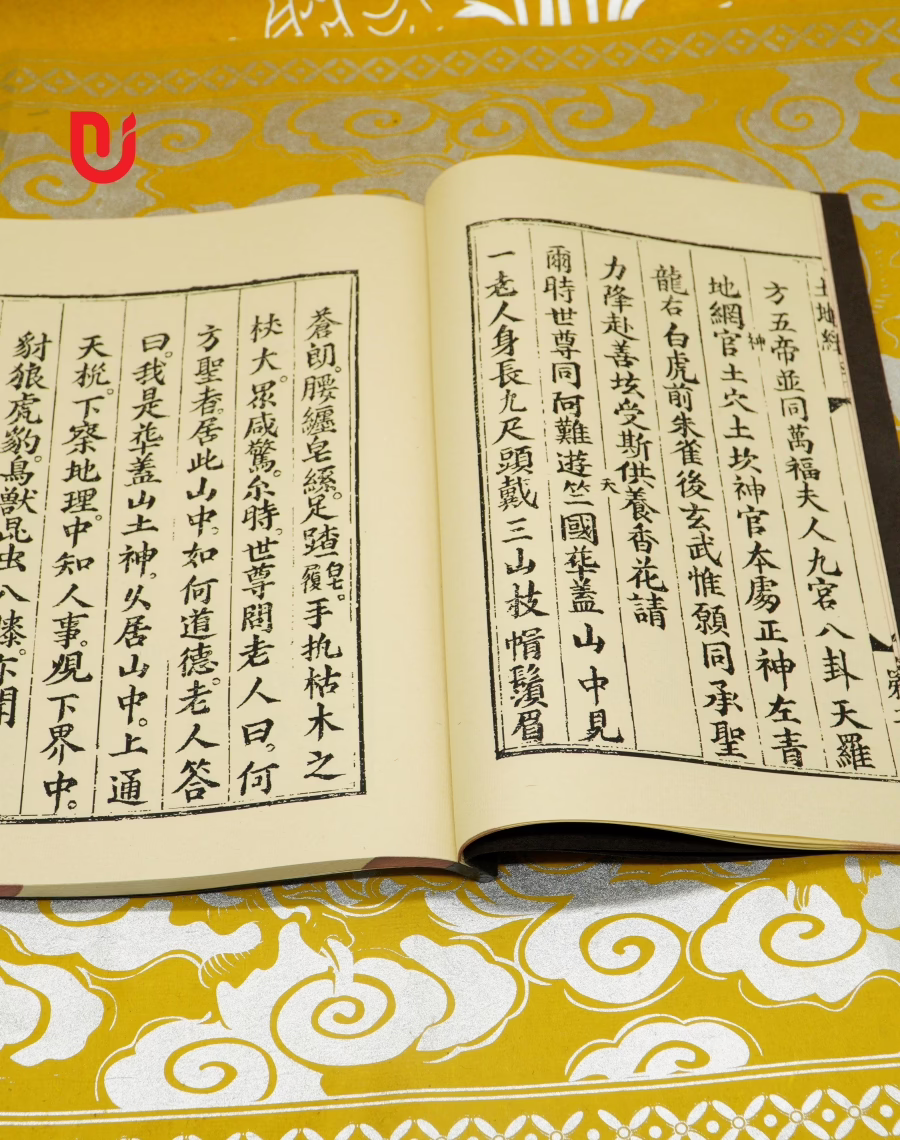 土地經
方五帝並同萬福夫人九宮八卦天羅
地網官土穴土坎神官本處正神左青
神
龍右白虎前朱雀後玄武惟願同承聖
力降赴善垓受斯供養香花請
天
爾時世尊同阿難遊竺國華蓋山中見
一老人身長九尺頭戴三山枝帽鬚眉
蒼朗。腰纏皂絲。足踏皂履。手执枯木之
杖大。眾咸驚。尒時。世尊問老人曰。何
方聖者。居此山中。如何道德。老人答
曰。我是華蓋山土神。久居山中。上通
天棿。下察地理。中知人事。覌下界中。
豺狼虎豹。鳥獸昆虫八